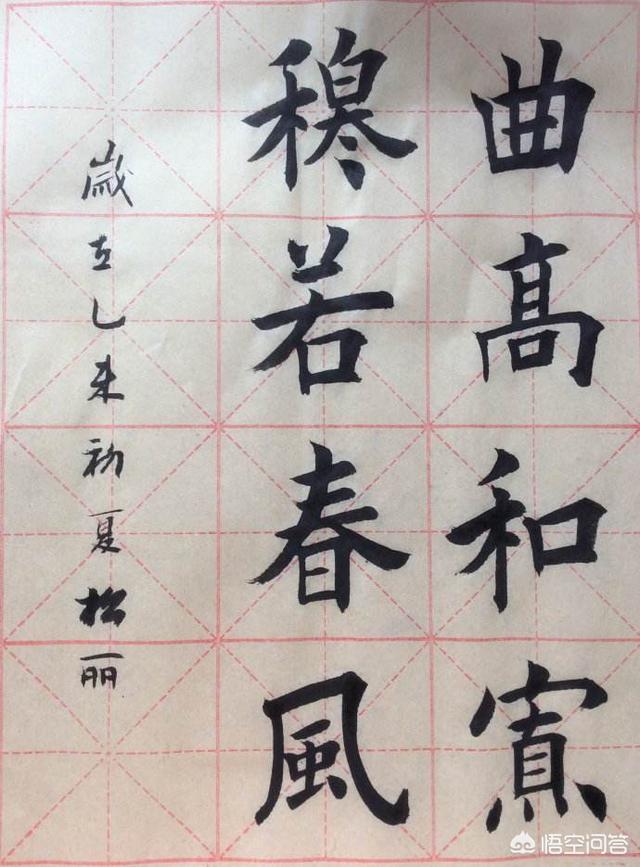 曲髙和寡
穆若春風
歲在乙未初夏松丽
悟空问答